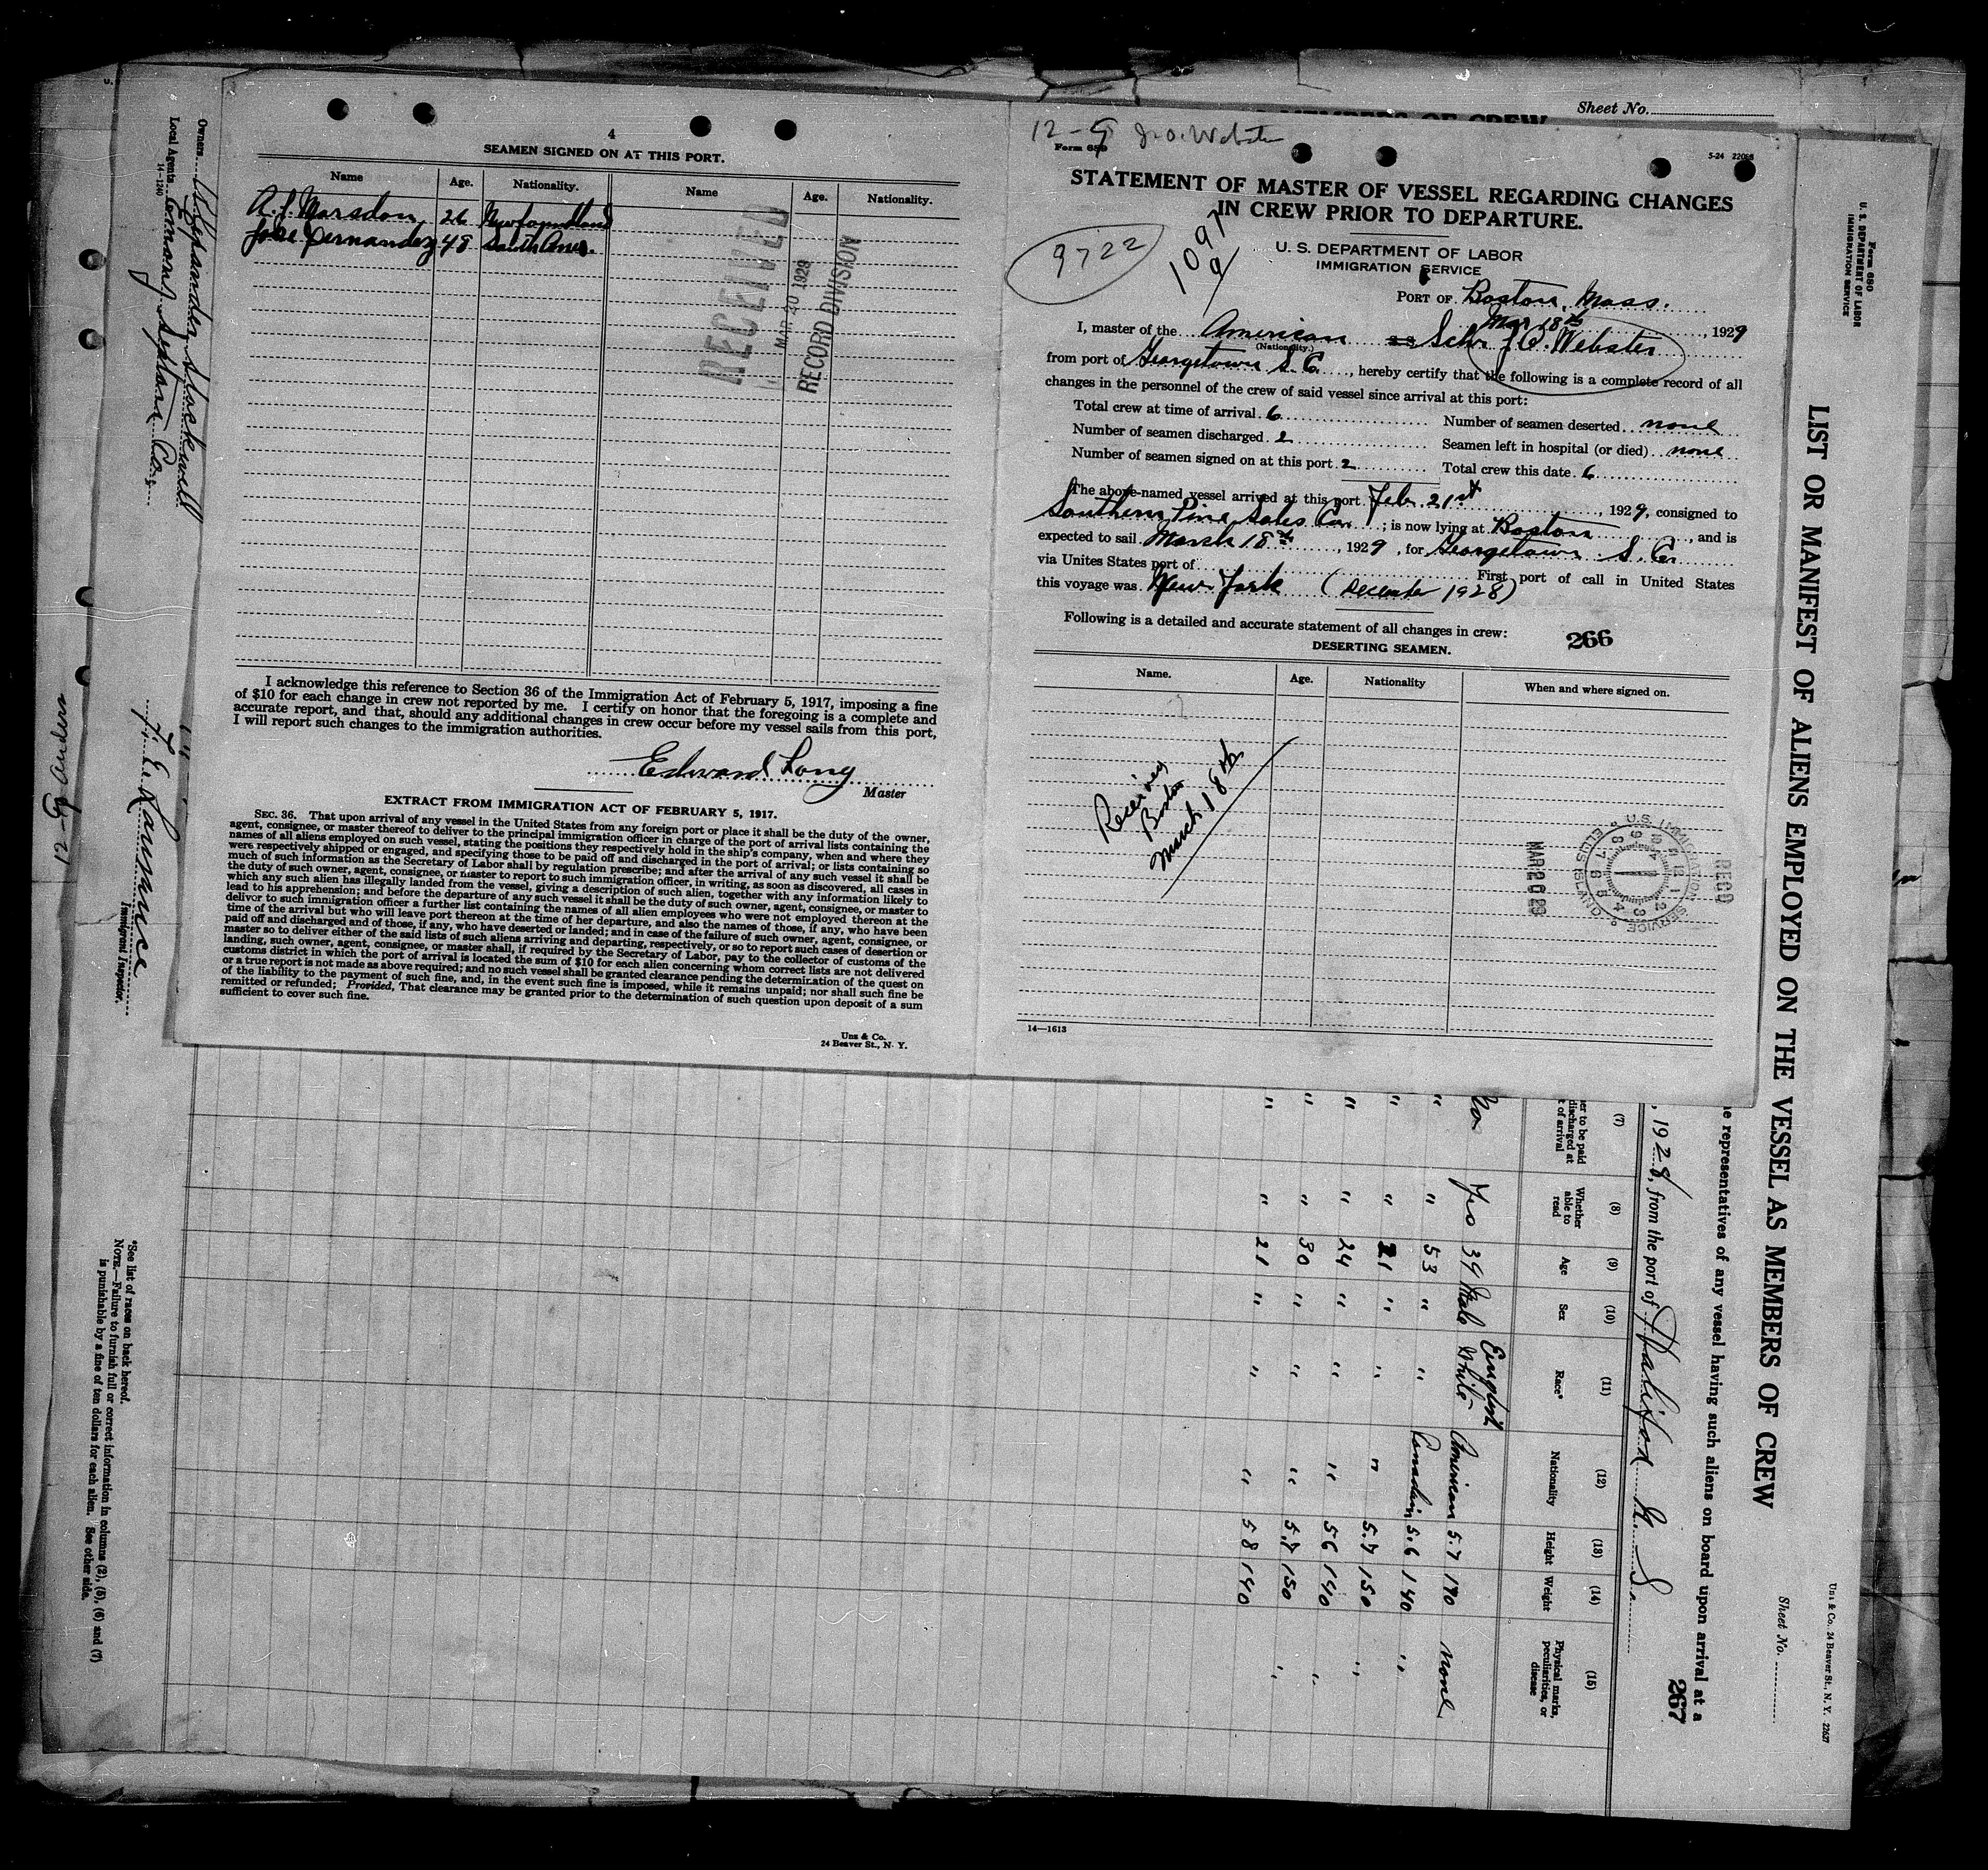 4
SEAMEN SIGNED ON AT THIS PORT.
Name Age. Nationality. Name Age. Nationality.
A. J. Marsdon 26 Newfoundland
Jose Fernandez 48 South Amer.
RECEIVED
MAR 20 1929
RECORD DIVISION
I acknowledge this reference to Section 36 of the Immigration Act of February 5, 1917, imposing a fine
of $10 for each change in crew not reported by me. I certify on honor that the foregoing is a complete and
accurate report, and that, should any additional changes in crew occur before my vessel sails from this port,
I will report such changes to the immigration authorities.
Edward Long
Master
EXTRACT FROM IMMIGRATION ACT OF FEBRUARY 5, 1917.
SEC. 36. That upon arrival of any vessel in the United States from any foreign port or place it shall be the duty of the owner,
agent, consignee, or master thereof to deliver to the principal immigration officer in charge of the port of arrival lists containing the
names of all aliens employed on such vessel, stating the positions they respectively hold in the ship's company, when and where they
were respectively shipped or engaged, and specifying those to be paid off and discharged in the port of arrival; or lists containing so
much of such information as the Secretary of Labor shall by regulation prescribe; and after the arrival of any such vessel it shall be
the duty of such owner, agent, consignee, or master to report to such immigration officer, in writing, as soon as discovered, all cases in
which any such alien has illegally landed from the vessel, giving a description of such alien, together with any information likely to
lead to his apprehension; and before the departure of any such vessel it shall be the duty of such owner, agent, consignee, or master to
deliver to such immigration officer a further list containing the names of all alien employees who were not employed thereon at the
time of the arrival but who will leave port thereon at the time of her departure, and also the names of those, if any, who have been
paid off and discharged and of those, if any, who have deserted or landed; and in case of the failure of such owner, agent, consignee, or
master so to deliver either of the said lists of such aliens arriving and departing, respectively, or so to report such cases of desertion or
landing, such owner, agent, consignee, or master shall, if required by the Secretary of Labor, pay to the collector of customs of the
customs district in which the port of arrival is located the sum of $10 for each alien concerning whom correct lists are not delivered
or a true report is not made as above required; and no such vessel shall be granted clearance pending the determination of the quest on
of the liability to the payment of such fine, and, in the event such fine is imposed, while it remains unpaid; nor shall such fine be
remitted or refunded; Provided, That clearance may be granted prior to the determination of such question upon deposit of a sum
sufficient to cover such fine.
Uns & Co.
24 Beaver St., N. Y.
Sheet No.
MEMBERS OF CREW
12-G J. O. Webster
Form 689
5-24 22068
STATEMENT OF MASTER OF VESSEL REGARDING CHANGES
IN CREW PRIOR TO DEPARTURE.
U. S. DEPARTMENT OF LABOR
IMMIGRATION SERVICE
9722
1097
9
PORT OF Boston, Mass.
Mar 18th, 1929
I, master of the American ss Schr J. O. Webster
(Nationality.)
from port of Georgetown S. C., hereby certify that the following is a complete record of all
changes in the personnel of the crew of said vessel since arrival at this port:
Total crew at time of arrival 6 Number of seamen deserted none
Number of seamen discharged 2 Seamen left in hospital (or died) none
Number of seamen signed on at this port 2 Total crew this date 6
The above-named vessel arrived at this port Feb. 21st, 1929, consigned to
Southern Pine Sales Co.; is now lying at Boston, and is
expected to sail March 18th, 1929, for Georgetown S. C.
via Unites States port of First port of call in United States
this voyage was New York (December 1928)
Following is a detailed and accurate statement of all changes in crew:
266
DESERTING SEAMEN.
Name. Age. Nationality When and where signed on.
Boston
March 18th
REC'D
U.S. IMMIGRATION SERVICE
ELLIS ISLAND
MAR 20 29
14—1613
Form 680
U. S. DEPARTMENT OF LABOR
IMMIGRATION SERVICE
LIST OR MANIFEST OF ALIENS EMPLOYED ON THE VESSEL AS MEMBERS OF CREW
Uns & Co., 24 Beaver St., N. Y. 22627
Sheet No.
he representatives of any vessel having such aliens on board upon arrival at a
267
, 1928, from the port of Halifax N. S.
(7) (8) (9) (10) (11) (12) (13) (14) (15)
er to be paid
discharged at
t of arrival
Whether
able to
read
Age
Sex
Race*
Nationality
Height
Weight
Physical marks,
peculiarities, or
disease
English
No Yes 39 Male White American 5.7 170 none
" " 53 " " Canadian 5.6 140 "
" " 21 " " " 5.7 150 "
" " 24 " " " 5 6 140 "
" " 30 " " " 5.7 150 "
" " 21 " " " 5 8 140
Owners
Local Agents
14-1240
Immigrant Inspector.
*See list of races on back hereof.
NOTE.—Failure to furnish full or correct information in columns (2), (5), (6) and (7)
is punishable by a fine of ten dollars for each alien. See other side.